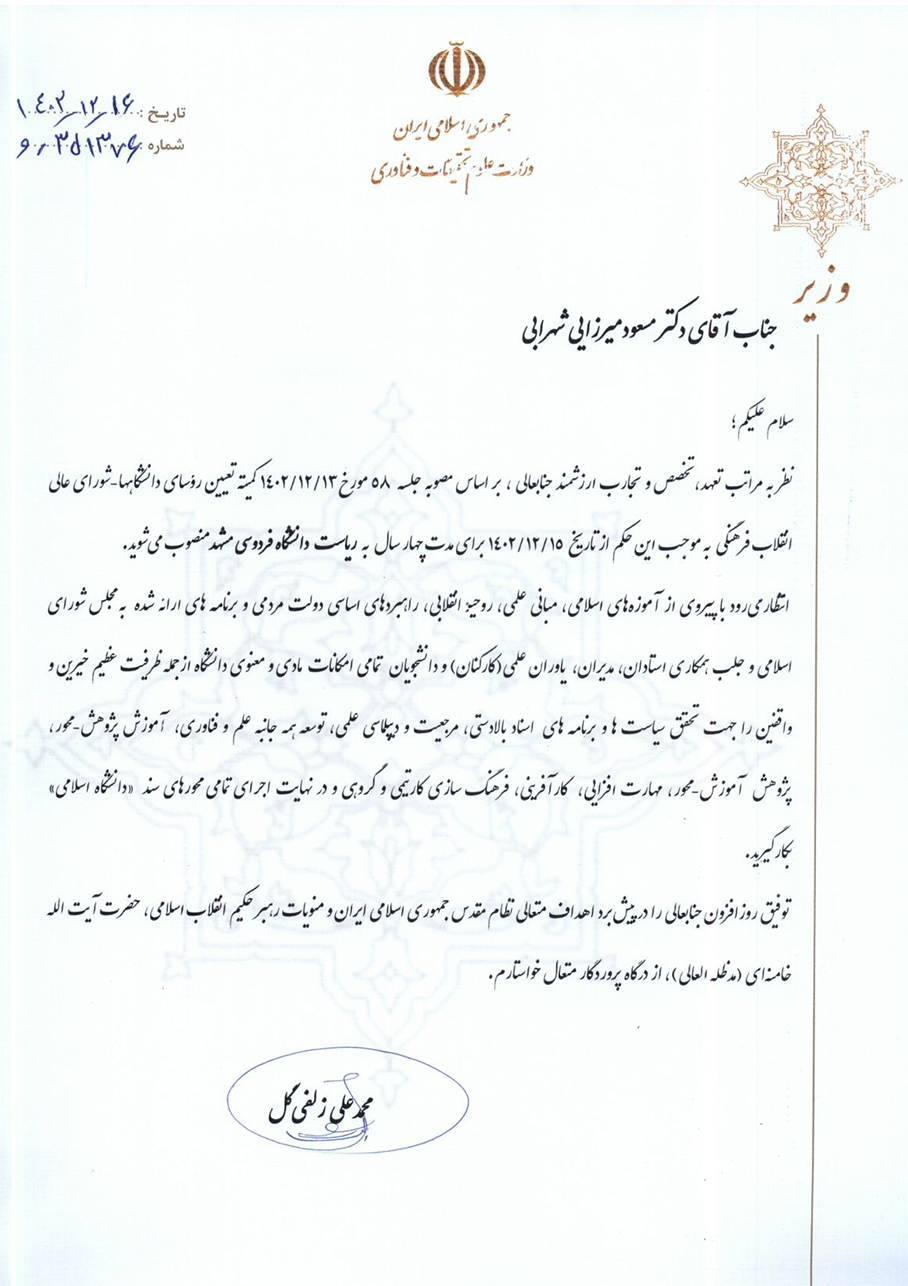 جمهوری اسلامی ایران
وزارت علوم تحقیقات و فناوری
تاریخ : ۱۴۰۲/۱۲/۱۶
شماره :
وزیر
جناب آقای دکتر مسعود میرزایی شهرابی
سلام علیکم؛
نظر به مراتب تعهد، تخصص و تجارب ارزشمند جنابعالی ، بر اساس مصوبه جلسه ۵۸ مورخ ۱۴۰۲/۱۲/۱۳ کمیته تعیین رؤسای دانشگاهها-شورای عالی
انقلاب فرهنگی به موجب این حکم از تاریخ ۱۴۰۲/۱۲/۱۵ برای مدت چهار سال به ریاست دانشگاه فردوسی مشهد منصوب می‌شوید.
انتظار می‌رود با پیروی از آموزه‌های اسلامی، مبانی علمی، روحیۀ انقلابی، راهبردهای اساسی دولت مردمی و برنامه های ارائه شده به مجلس شورای
اسلامی و جلب همکاری استادان، مدیران، یاوران علمی(کارکنان) و دانشجویان تمامی امکانات مادی و معنوی دانشگاه از جمله ظرفیت عظیم خیرین و
واقفین را جهت تحقق سیاست ها و برنامه های اسناد بالادستی، مرجعیت و دیپلماسی علمی، توسعه همه جانبه علم و فناوری، آموزش پژوهش-محور ،
پژوهش آموزش-محور ، مهارت افزایی، کارآفرینی، فرهنگ سازی کار تیمی و گروهی و در نهایت اجرای تمامی محورهای سند «دانشگاه اسلامی»
بکار گیرید.
توفیق روز افزون جنابعالی را در پیش برد اهداف متعالی نظام مقدس جمهوری اسلامی ایران و منویات رهبر حکیم انقلاب اسلامی، حضرت آیت الله
خامنه‌ای (مدظله العالی)، از درگاه پروردگار متعال خواستارم.
محمدعلی زلفی گل